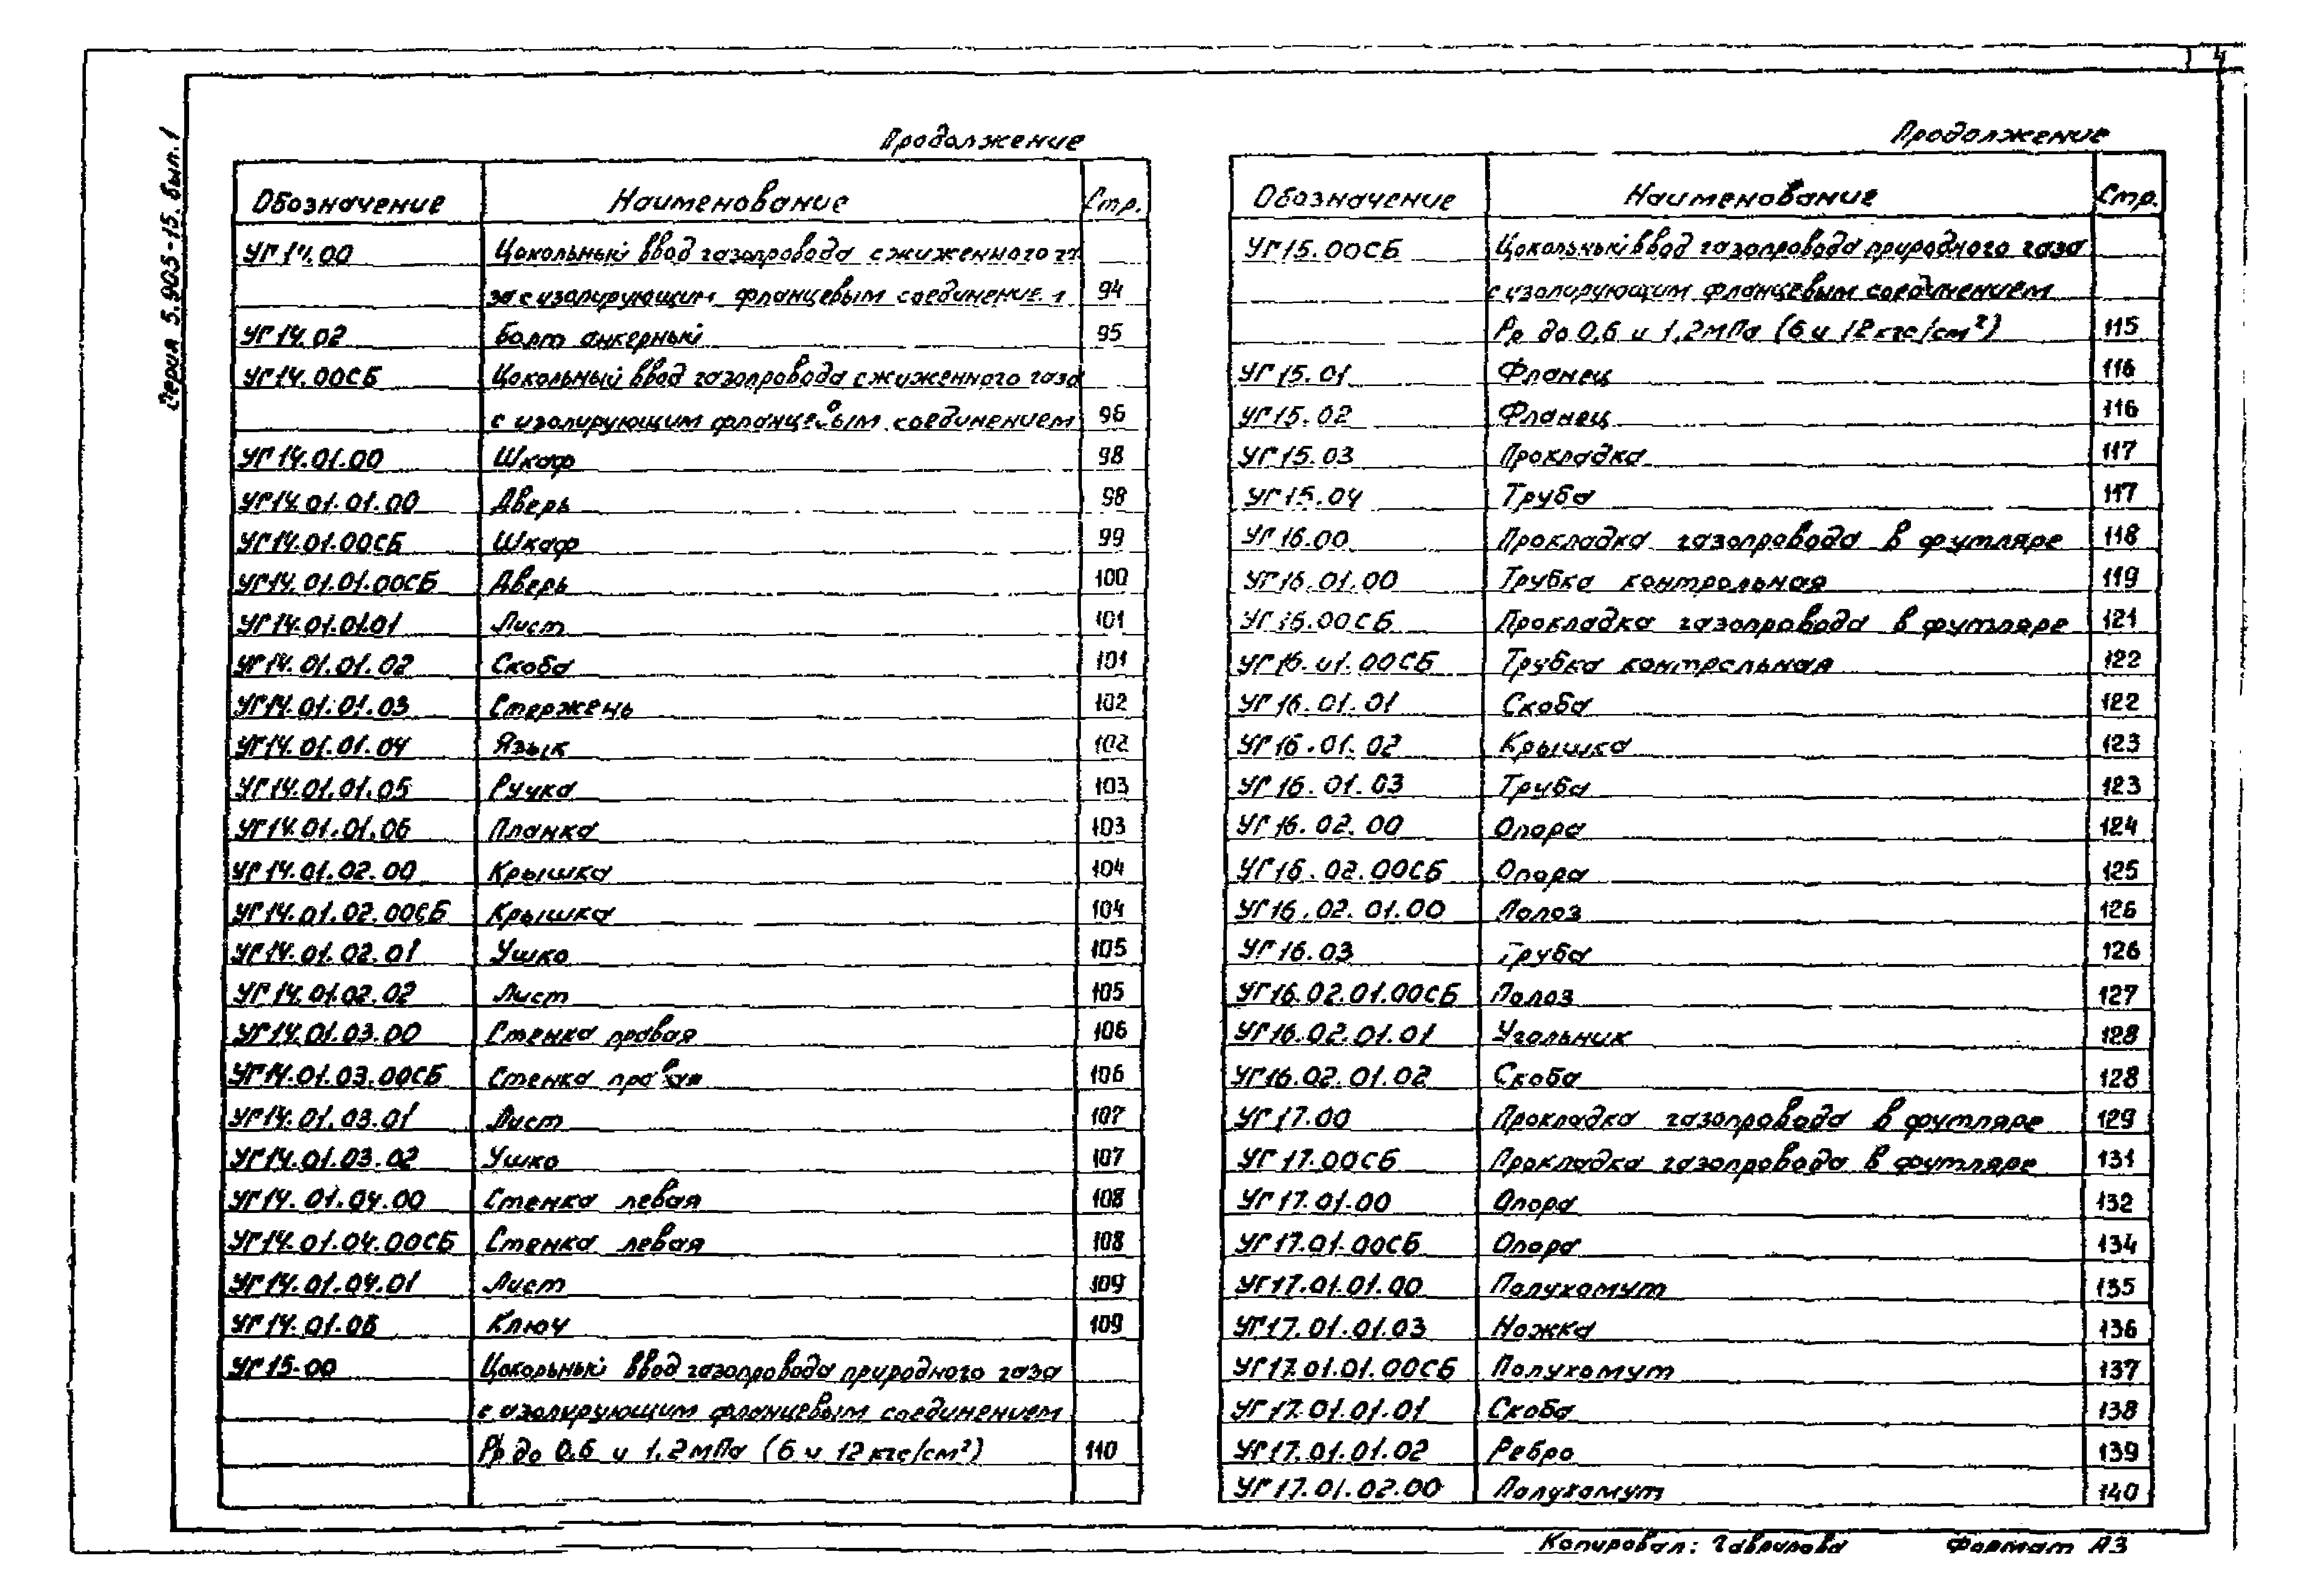 4
Серия 5.905-15. вып. 1
Продолжение
Обозначение Наименование Стр.
УГ14.00 Цокольный ввод газопровода сжиженного га
за с изолирующим фланцевым соединение 94
УГ14.02 Болт анкерный 95
УГ14.00СБ Цокольный ввод газопровода сжиженного газа
с изолирующим фланцевым соединением 96
УГ14.01.00 Шкаф 98
УГ14.01.01.00 Дверь 98
УГ14.01.00СБ Шкаф 99
УГ14.01.01.00СБ Дверь 100
УГ14.01.01.01 Лист 101
УГ14.01.01.02 Скоба 101
УГ14.01.01.03 Стержень 102
УГ14.01.01.04 Язык 102
УГ14.01.01.05 Ручка 103
УГ14.01.01.06 Планка 103
УГ14.01.02.00 Крышка 104
УГ14.01.02.00СБ Крышка 104
УГ14.01.02.01 Ушко 105
УГ14.01.02.02 Лист 105
УГ14.01.03.00 Стенка правая 106
УГ14.01.03.00СБ Стенка правая 106
УГ14.01.03.01 Лист 107
УГ14.01.03.02 Ушко 107
УГ14.01.04.00 Стенка левая 108
УГ14.01.04.00СБ Стенка левая 108
УГ14.01.04.01 Лист 109
УГ14.01.06 Ключ 109
УГ15.00 Цокольный ввод газопровода природного газа
с изолирующим фланцевым соединением
Рр до 0,6 и 1,2 мПа (6 и 12 кгс/см²) 110
Продолжение
Обозначение Наименование Стр.
УГ15.00СБ Цокольный ввод газопровода природного газа
с изолирующим фланцевым соединением
Рр до 0,6 и 1,2 мПа (6 и 12 кгс/см²) 115
УГ15.01 Фланец 116
УГ15.02 Фланец 116
УГ15.03 Прокладка 117
УГ15.04 Труба 117
УГ16.00 Прокладка газопровода в футляре 118
УГ16.01.00 Трубка контрольная 119
УГ16.00СБ Прокладка газопровода в футляре 121
УГ16.01.00СБ Трубка контрольная 122
УГ16.01.01 Скоба 122
УГ16.01.02 Крышка 123
УГ16.01.03 Труба 123
УГ16.02.00 Опора 124
УГ16.02.00СБ Опора 125
УГ16.02.01.00 Полоз 126
УГ16.03 Труба 126
УГ16.02.01.00СБ Полоз 127
УГ16.02.01.01 Угольник 128
УГ16.02.01.02 Скоба 128
УГ17.00 Прокладка газопровода в футляре 129
УГ17.00СБ Прокладка газопровода в футляре 131
УГ17.01.00 Опора 132
УГ17.01.00СБ Опора 134
УГ17.01.01.00 Полухомут 135
УГ17.01.01.03 Ножка 136
УГ17.01.01.00СБ Полухомут 137
УГ17.01.01.01 Скоба 138
УГ17.01.01.02 Ребро 139
УГ17.01.02.00 Полухомут 140
Копировал: Гаврилова Формат А3